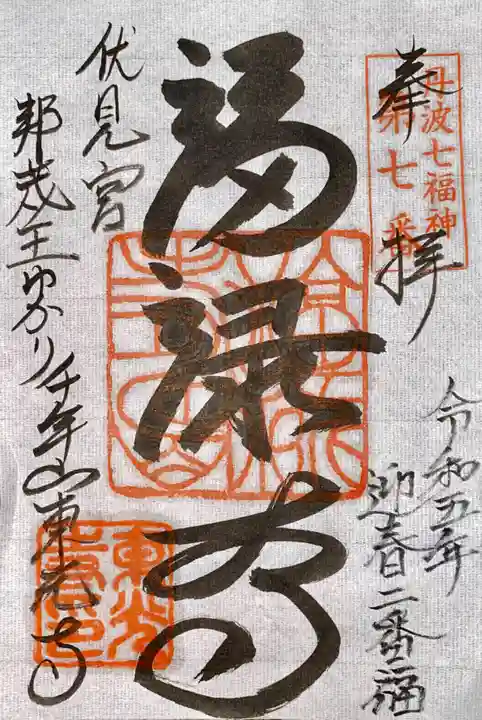 奉拝
丹波七福神
第七番
令和五年
迎春二番福
福禄寿
伏見宮
邦茂王ゆかり千年山東光寺
東光